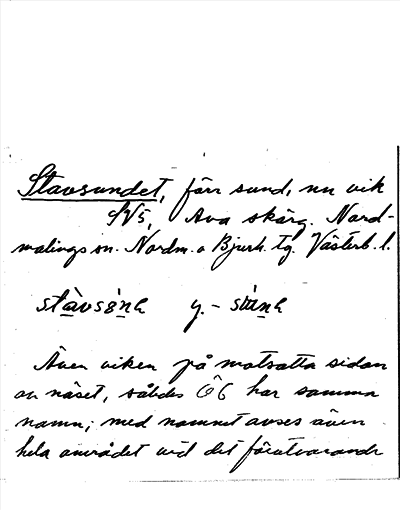 Stavsundet, förr sund, nu vik
SV5, Ava skärg. Nord-
malings sn. Nordm. o Bjurh. tg. Västerb. l.
y. -
Även viken på motsatta sidan
av näset, således Ö6 har samma
namn; med namnet avses även
hela området vid det förutvarande